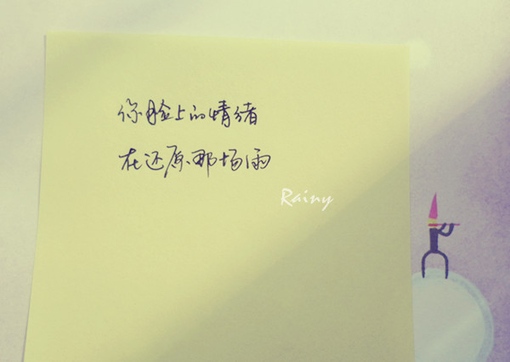 你脸上的情绪
在还原那场雨
Rainy